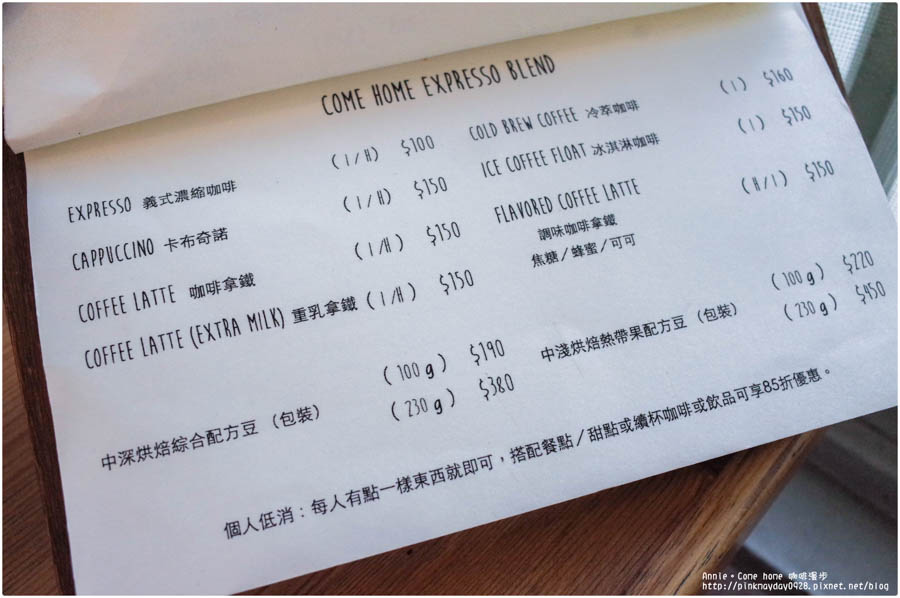 COME HOME EXPRESSO BLEND
EXPRESSO 義式濃縮咖啡 (I/H) $100
CAPPUCCINO 卡布奇諾 (I/H) $150
COFFEE LATTE 咖啡拿鐵 (I/H) $150
COFFEE LATTE (EXTRA MILK) 重乳拿鐵 (I/H) $150
中深烘焙綜合配方豆 (包裝) (100g) $190
(230g) $380
COLD BREW COFFEE 冷萃咖啡 (I) $160
ICE COFFEE FLOAT 冰淇淋咖啡 (I) $150
FLAVORED COFFEE LATTE (H/I) $150
調味咖啡拿鐵
焦糖/蜂蜜/可可
中淺烘焙熱帶果配方豆 (包裝) (100g) $220
(230g) $450
個人低消:每人有點一樣東西就即可,搭配餐點/甜點或續杯咖啡或飲品可享85折優惠。
Annie。Cone home 咖啡漫步
http://pinkmayday0928.pixnet.net/blog